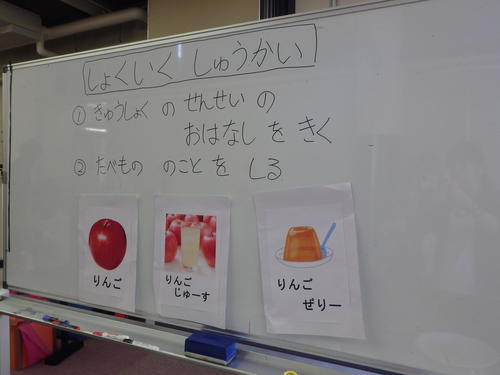 しょくいく しゅうかい
① きゅうしょく の せんせい の
おはなし を きく
② たべもの のこと を しる
りんご
りんご
じゅーす
りんご
ぜりー